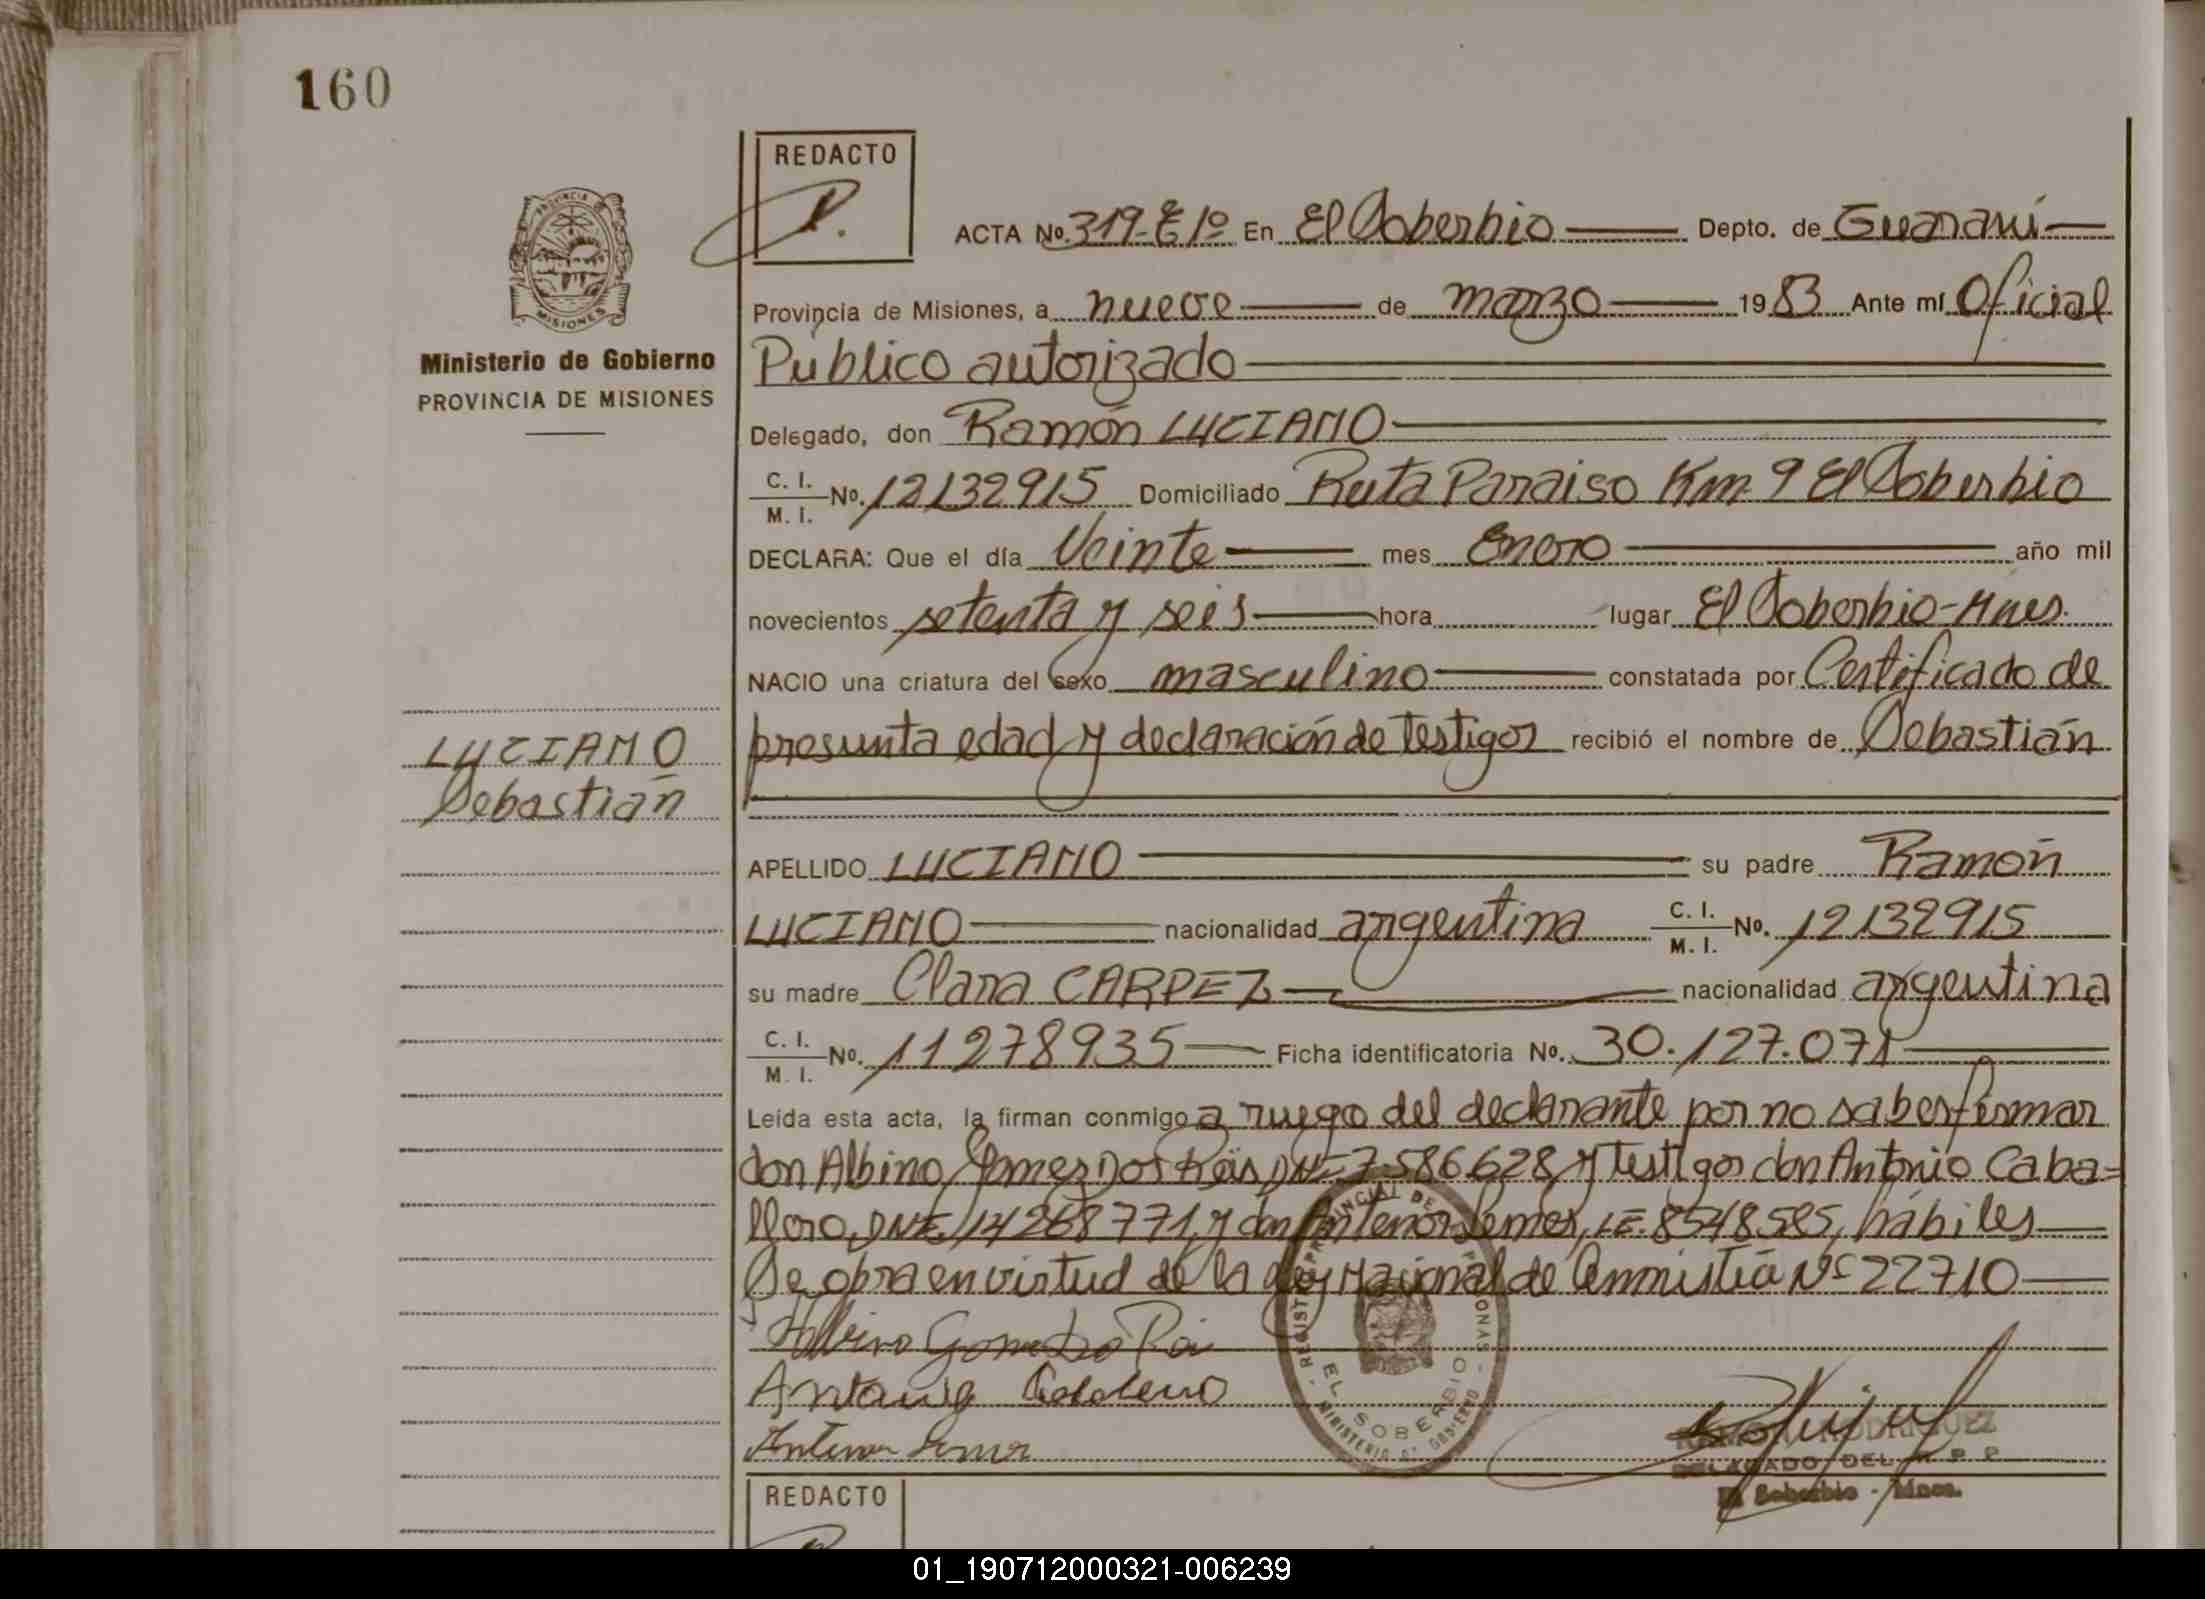 160
REDACTO
PROVINCIA
MISIONES
Ministerio de Gobierno
PROVINCIA DE MISIONES
ACTA No. 319-E 1º En El Soberbio Depto. de Guaraní
Provincia de Misiones, a nueve de marzo 1983 Ante mí Oficial
Público autorizado
Delegado, don Ramón LUCIANO
C. I. / M. I. No. 12132915 Domiciliado Ruta Paraiso Km 9 El Soberbio
DECLARA: Que el día Veinte mes Enero año mil
novecientos setenta y seis hora lugar El Soberbio-Mnes.
NACIO una criatura del sexo masculino constatada por Certificado de
presunta edad y declaración de testigos recibió el nombre de Sebastián
LUCIANO
Sebastián
APELLIDO LUCIANO su padre Ramón
LUCIANO nacionalidad argentina C. I. / M. I. No. 12132915
su madre Clara CARPEZ nacionalidad argentina
C. I. / M. I. No. 11278935 Ficha identificatoria No. 30.127.071
Leída esta acta, la firman conmigo a ruego del declarante por no saber firmar
don Albino Gomez Dos Reis, DNI 7.586.628, y testigos don Antonio Caba=
llero, DNI. 14268771, y don Antenor Lemes, LE. 8548585, hábiles
Se obra en virtud de la Ley Nacional de Amnistía Nº 22710
Albino Gomes Do Rei
Antonio Caballero
Antenor Lemes
REGISTRO PROVINCIAL DE PERSONAS
EL SOBERBIO
MINISTERIO DE GOBIERNO
RODRIGUEZ
DELEGADO DEL R. P. P.
El Soberbio - Mnes.
REDACTO
01_190712000321-006239